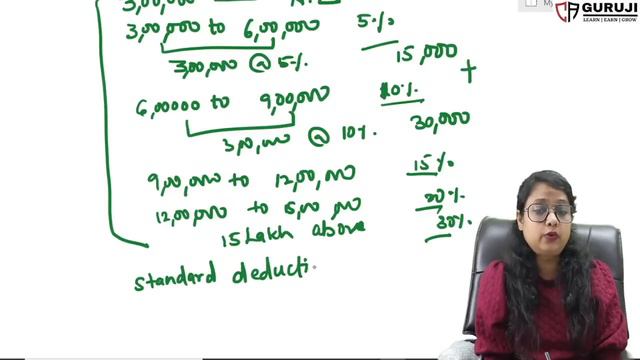 My
GURUJI
LEARN | EARN | GROW
3,00,000
3,00,000 to 6,00,000 5%
3,00,000 @ 5% 15,000 +
6,00000 to 9,00,000 10%
3,00,000 @ 10% 30,000
9,00,000 to 12,00,000 15%
12,00,000 to 15,00,000 20%
15 Lakh above 30%
standard deducti